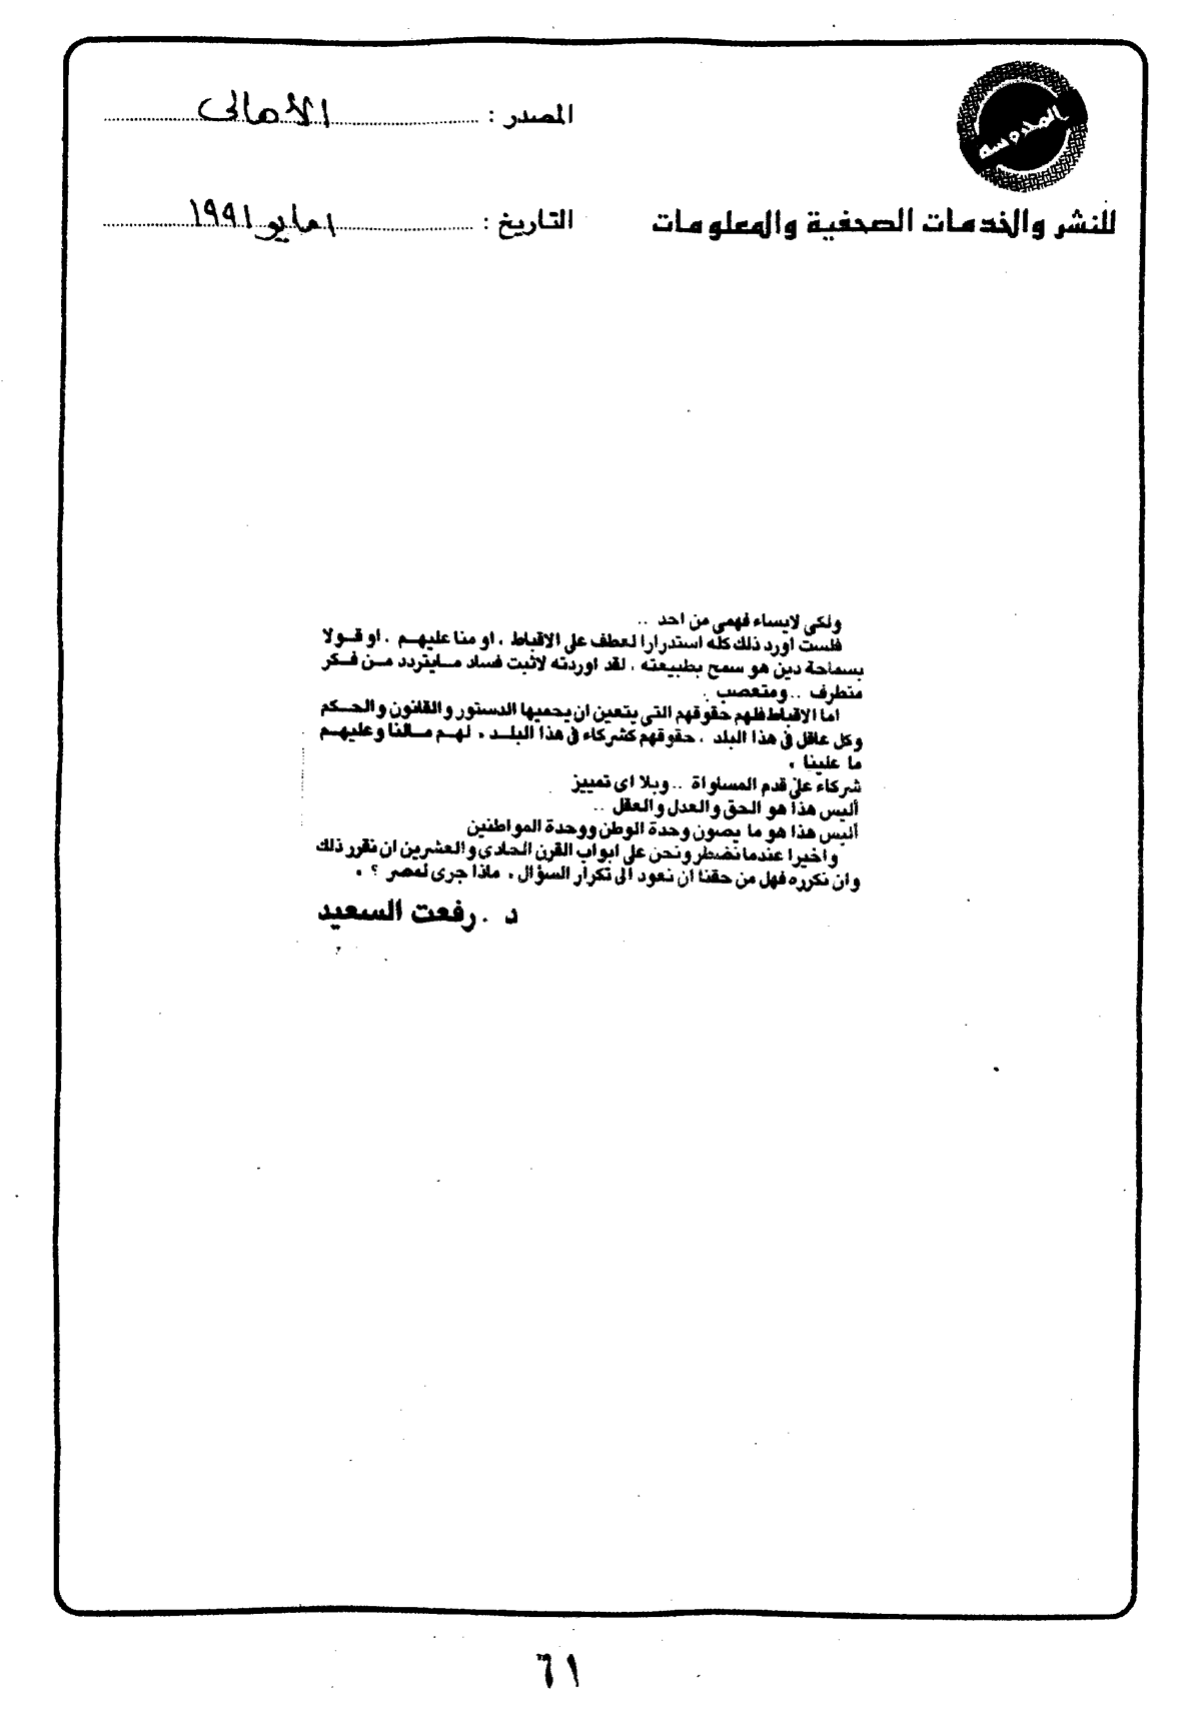 المحروسة
للنشر والخدمات الصحفية والمعلومات
المصدر : الأهالى
التاريخ : ١ مايو ١٩٩١
ولكى لايساء فهمى من احد ..
فلست اورد ذلك كله استدرارا لعطف على الاقباط ، او منا عليهم ، او قولا
بسماحة دين هو سمح بطبيعته ، لقد اوردته لاثبت فساد مايتردد من فكر
متطرف .. ومتعصب .
اما الاقباط فلهم حقوقهم التى يتعين ان يحميها الدستور والقانون والحكم
وكل عاقل فى هذا البلد ، حقوقهم كشركاء فى هذا البلد ، لهم مالنا وعليهم
ما علينا ،
شركاء على قدم المساواة .. وبلا اى تمييز
أليس هذا هو الحق والعدل والعقل ..
أليس هذا هو ما يصون وحدة الوطن ووحدة المواطنين
واخيرا عندما نضطر ونحن على ابواب القرن الحادى والعشرين ان نقرر ذلك
وان نكرره فهل من حقنا ان نعود الى تكرار السؤال ، ماذا جرى لمصر ؟ ،
د . رفعت السعيد
٦١